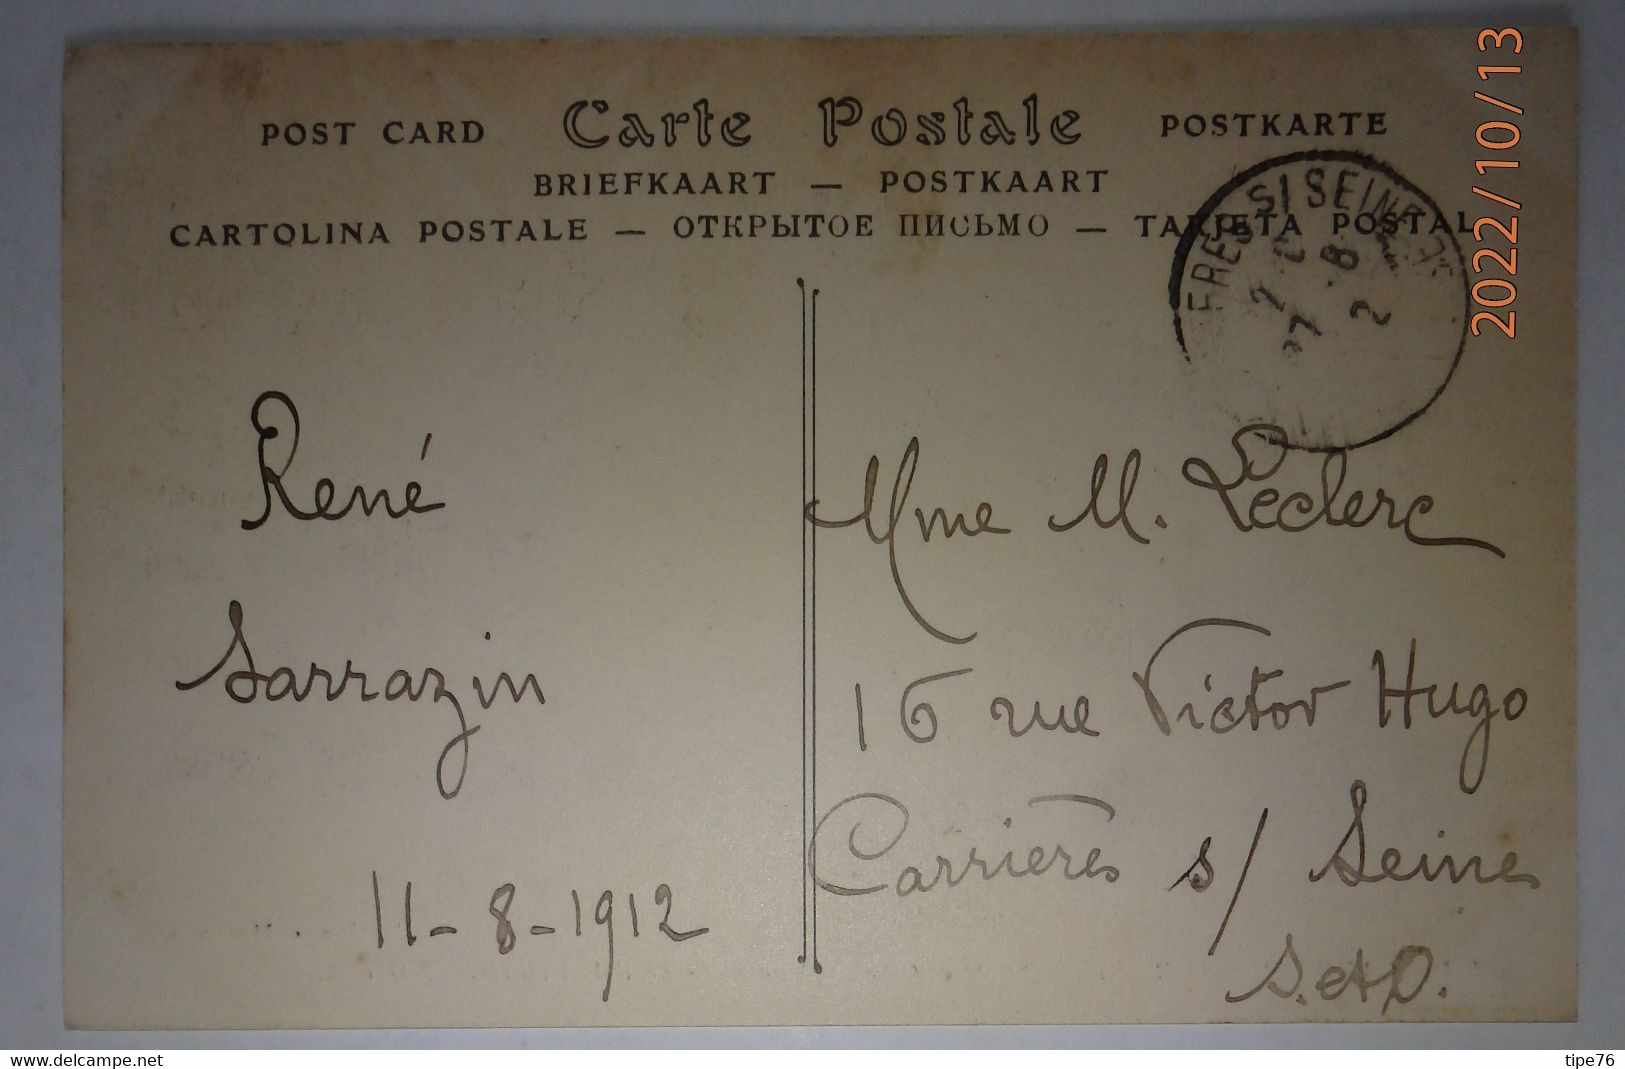 POST CARD Carte Postale POSTKARTE
BRIEFKAART — POSTKAART
CARTOLINA POSTALE — ОТКРЫТОЕ ПИСЬМО — TARJETA POSTAL
2022/10/13
SEINE
René
Sarrazin
11-8-1912
Mme M. Leclerc
16 rue Victor Hugo
Carrières s/ Seine
S. et O.
www.delcampe.net
tipe76